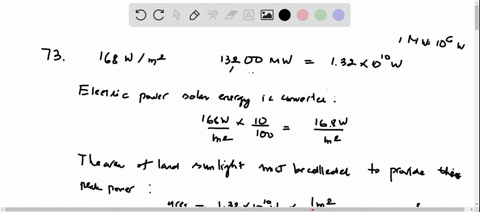 1 MW = 10⁶ W
73. 168 W/m² 13200 MW = 1.32 × 10¹⁰ W
Electric power solar energy is converter :
168W/m² × 10/100 = 16.8W/m²
The area of land sunlight must be collected to provide this
peak power :
area = 1.32 × 10¹⁰ 1m²